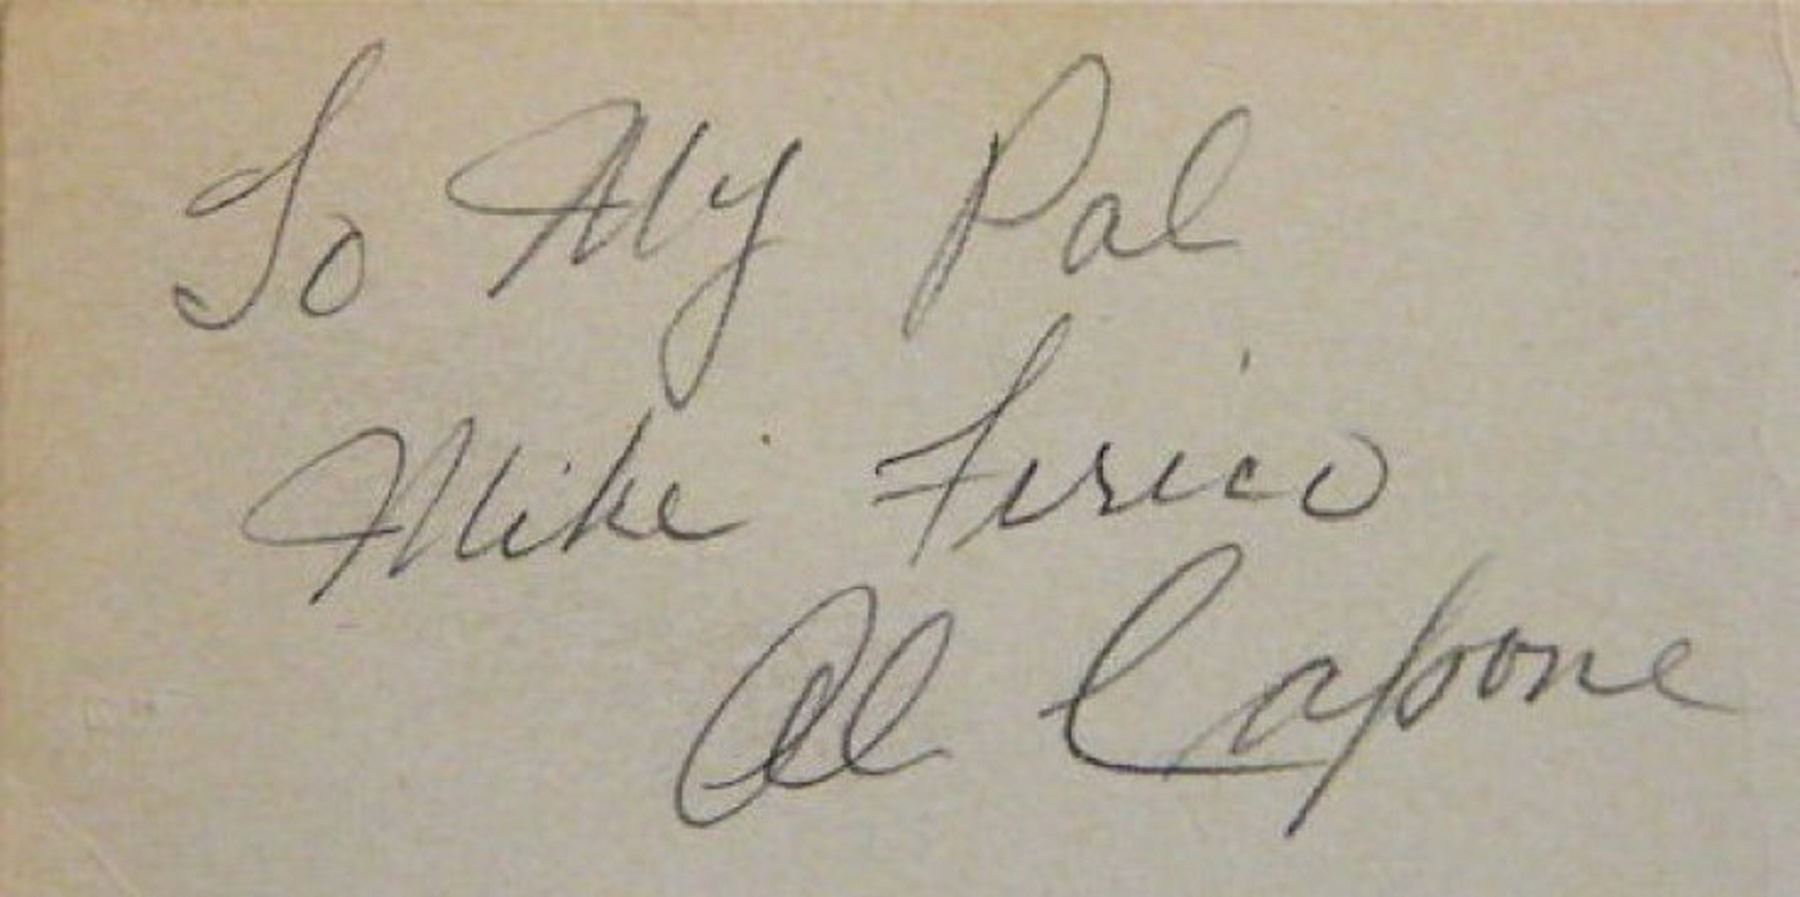 To My Pal
Mike Firico
Al Capone